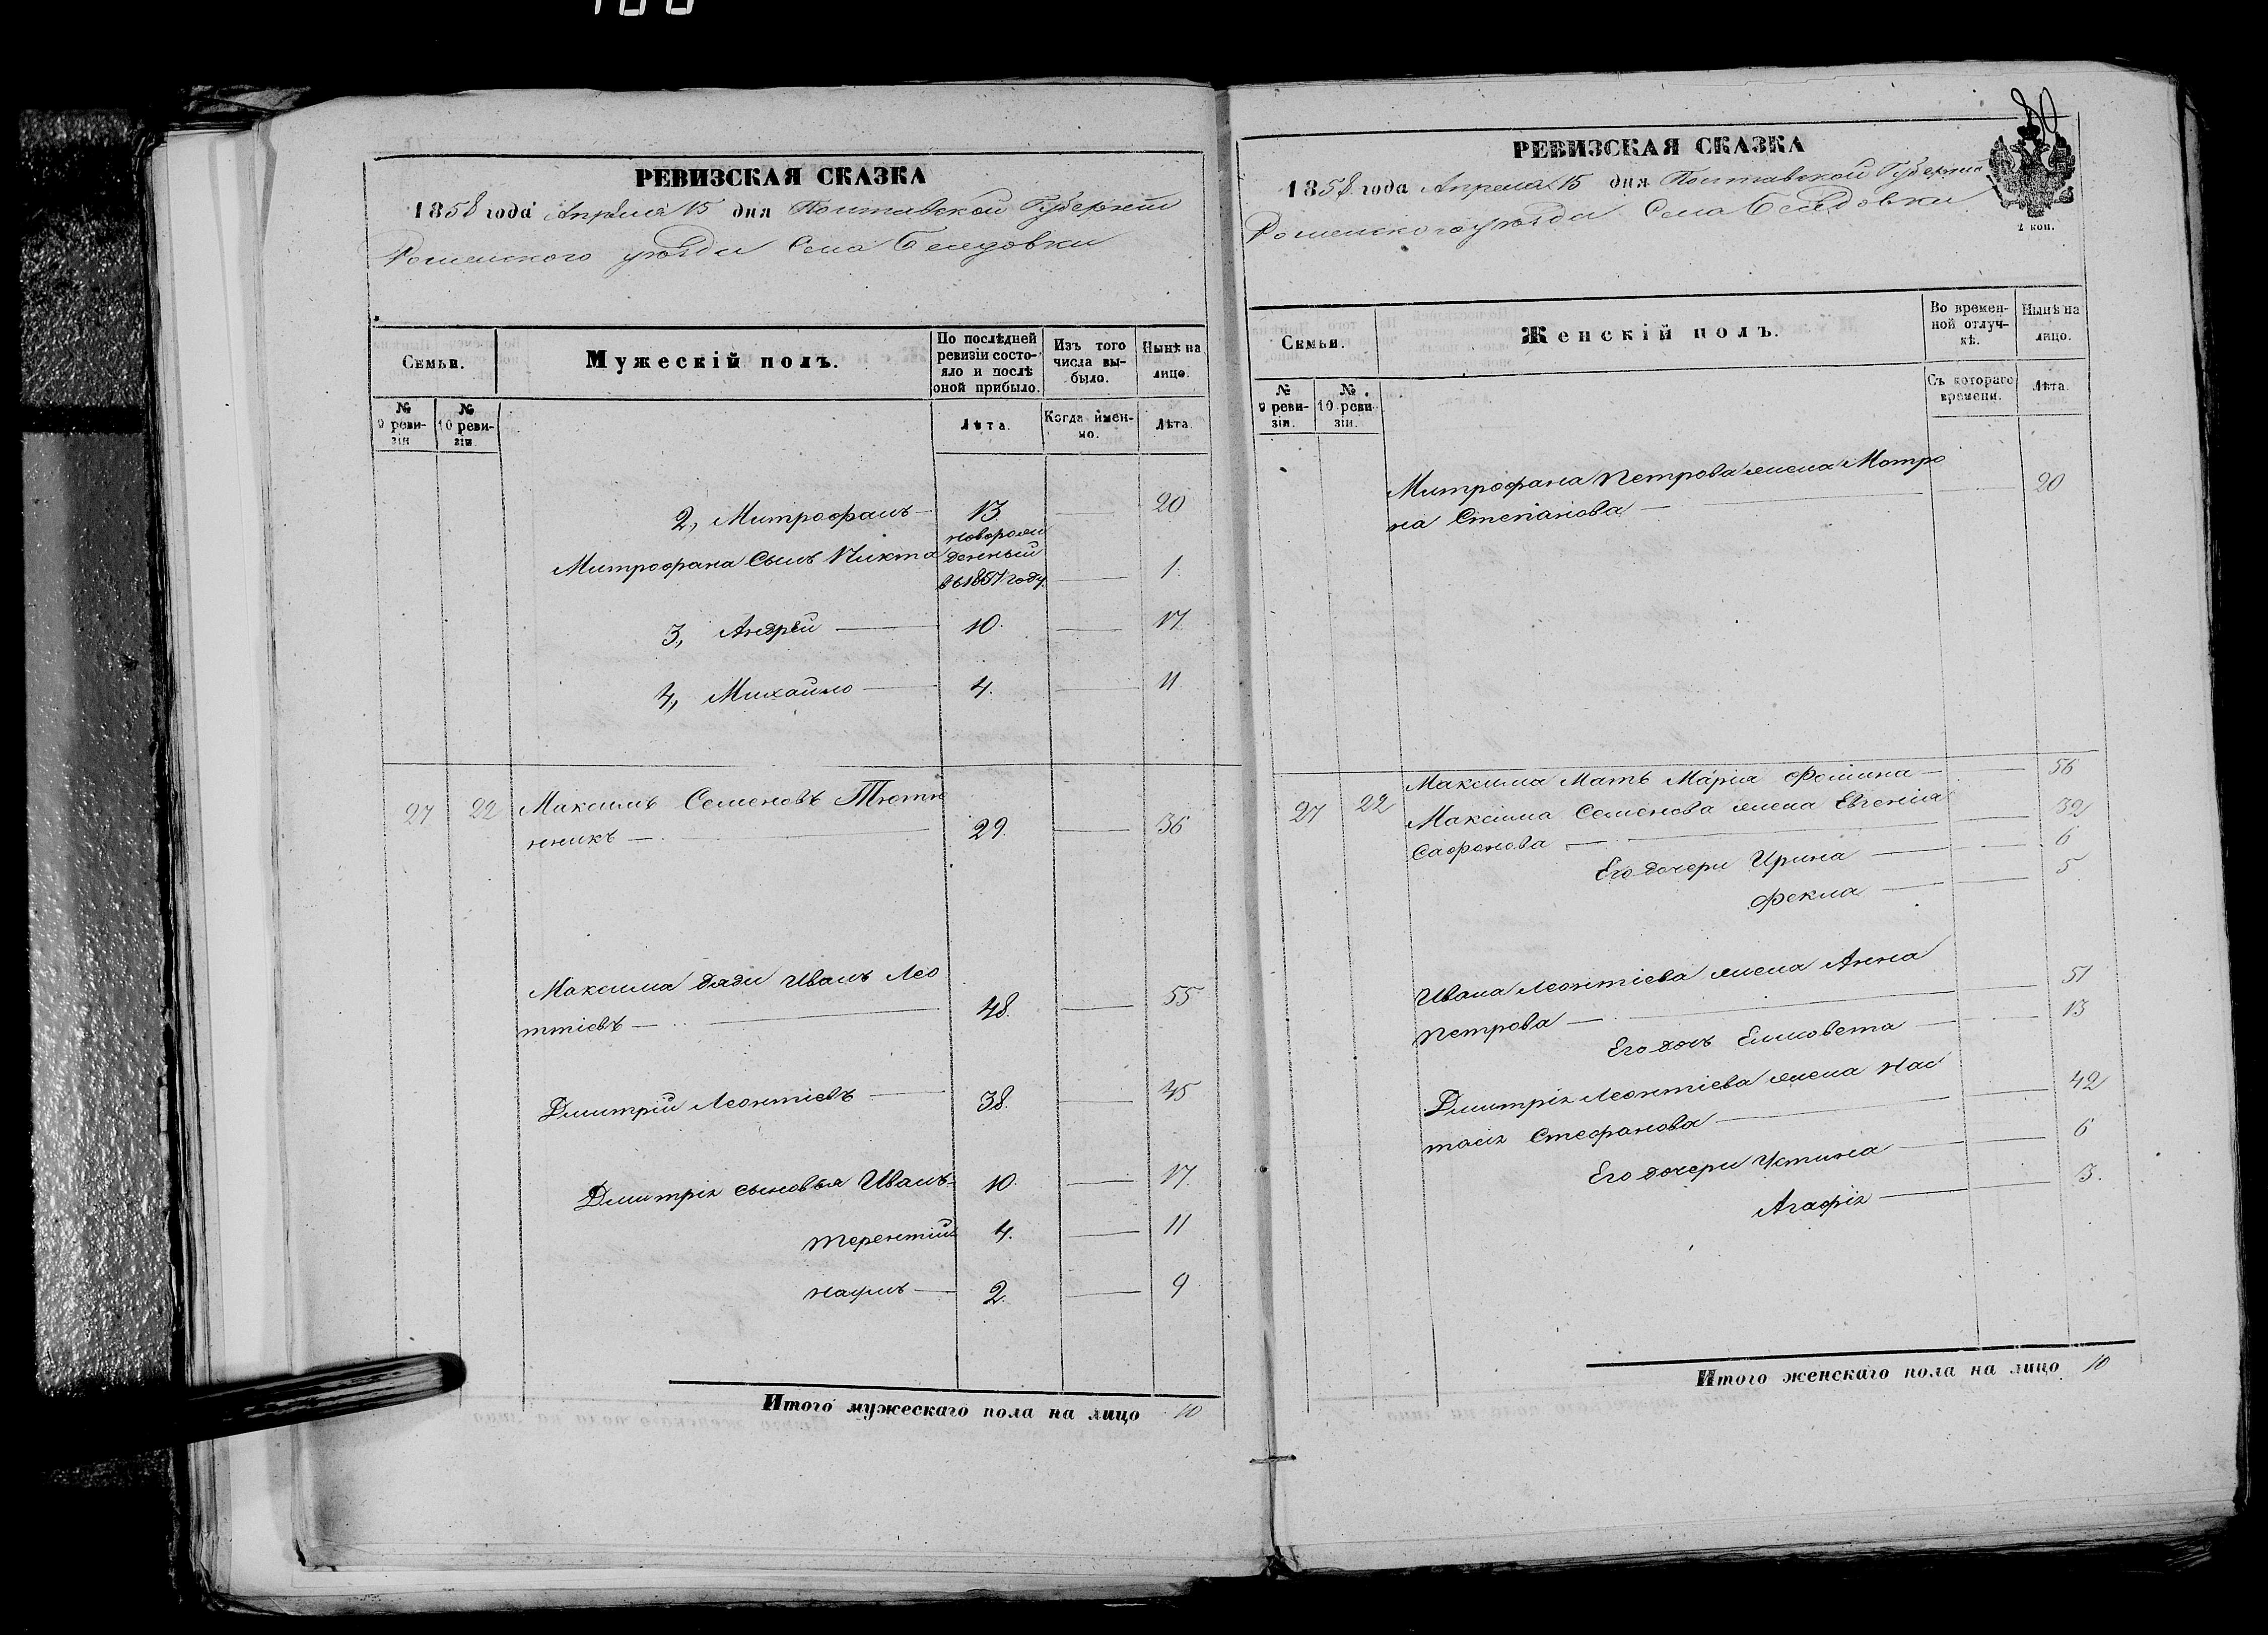 РЕВИЗСКАЯ СКАЗКА
1858 года Апреля 15 дня Полтавской Губернии
Роменского уезда Села Беседовки
Семьи.
Мужескій полъ.
По послѣдней
ревизіи состо-
яло и послѣ
оной прибыло.
Изъ того
числа вы-
было.
Нынѣ на
лицо.
№
9 реви-
зіи
№
10 реви-
зіи
Лѣта.
Когда имен-
но.
Лѣта.
2, Митрофанъ 13 20
Митрофана Сынъ Никита
новорож
денный
въ 1857 году. 1.
3, Андрей 10. 17
4, Михайло 4. 11
27 22 Максимъ Семеновъ Тютю
нникъ 29. 36
Максима дяди Иванъ Лео
нтіевъ 48. 55
Дмитрій Леонтіевъ 38. 45
Дмитрія сыновья Иванъ 10. 17
Терентій 4. 11
Наумъ 2. 9
Итого мужескаго пола на лицо 10
РЕВИЗСКАЯ СКАЗКА
1858 года Апреля 15 дня Полтавской Губерніи
Роменского уезда Села Беседовки
2 коп.
Семьи.
Женскій полъ.
Во времен-
ной отлуч-
кѣ.
Нынѣ на
лицо.
№
9 реви-
зіи.
№
10 реви-
зіи.
Съ котораго
времени.
Лѣта.
Митрофана Петрова жена Мотро
на Степанова 20
27 22 Максима Мать Марія Фомина 56
Максима Семенова жена Евгенія
Сафонова 32
Его дочери Ирина 6
Фекла 5
Ивана Леонтіева жена Анна
Петрова 51
Его дочь Елисовета 13
Дмитрія Леонтіева жена Нас
тасія Стефанова 42
Его дочери Устина 6
Агафія 3.
Итого женскаго пола на лицо 10